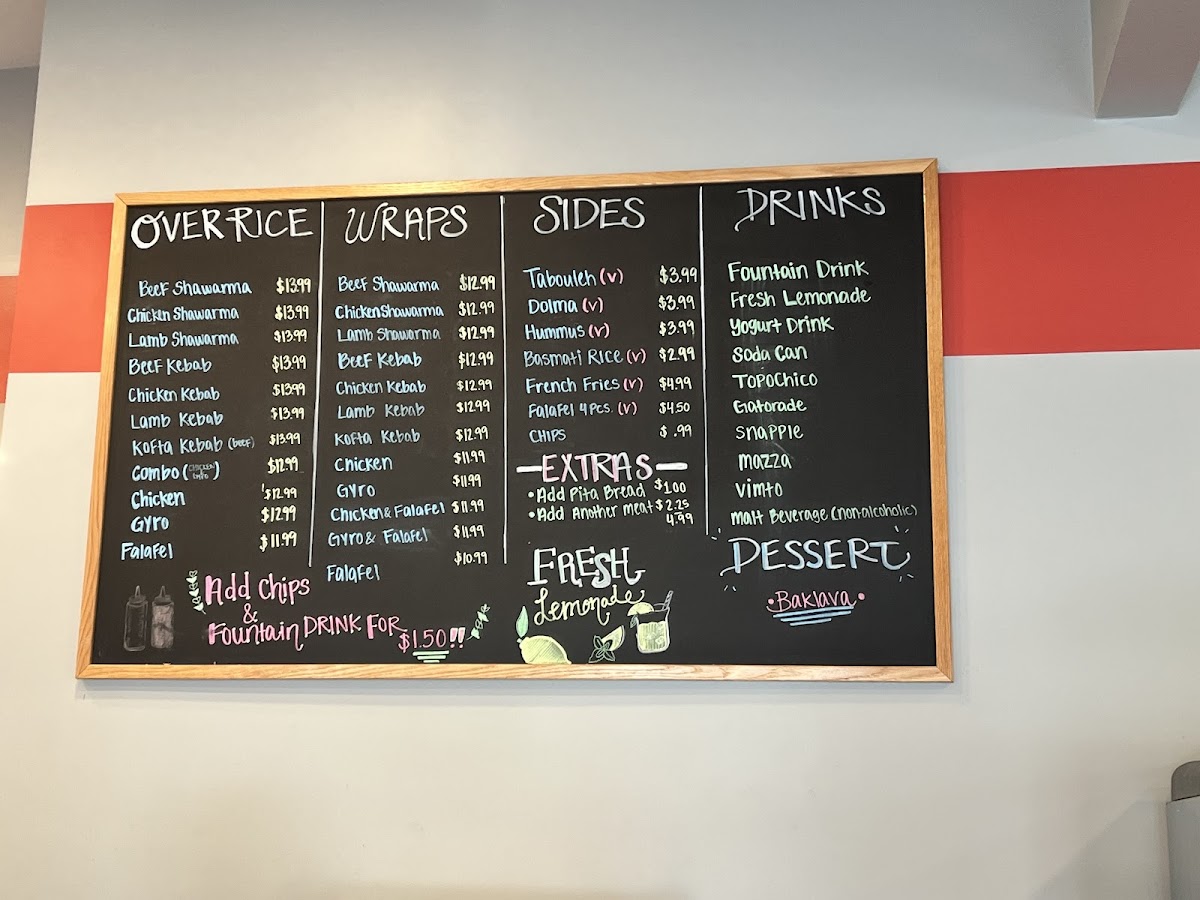 OVER RICE
Beef Shawarma $13.99
Chicken Shawarma $13.99
Lamb Shawarma $13.99
Beef Kebab $13.99
Chicken Kebab $13.99
Lamb Kebab $13.99
Kofta Kebab (beef) $13.99
Combo (CHICKEN GYRO) $12.99
Chicken $12.99
Gyro $12.99
Falafel $11.99
Add Chips
&
Fountain DRINK FOR
$1.50!!
WRAPS
Beef Shawarma $12.99
Chicken Shawarma $12.99
Lamb Shawarma $12.99
Beef Kebab $12.99
Chicken Kebab $12.99
Lamb Kebab $12.99
Kofta Kebab $12.99
Chicken $11.99
Gyro $11.99
Chicken & Falafel $11.99
Gyro & Falafel $11.99
Falafel $10.99
SIDES
Tabouleh (v) $3.99
Dolma (v) $3.99
Hummus (v) $3.99
Basmati Rice (v) $2.99
French Fries (v) $4.99
Falafel 4 Pcs. (v) $4.50
CHIPS $ .99
EXTRAS
• Add Pita Bread $1.00
• Add Another meat $2.25
4.99
FRESH
Lemonade
DRINKS
Fountain Drink
Fresh Lemonade
Yogurt Drink
Soda Can
TOPOCHICO
Gatorade
Snapple
mazza
Vimto
Malt Beverage (non-alcoholic)
DESSERT
• Baklava •